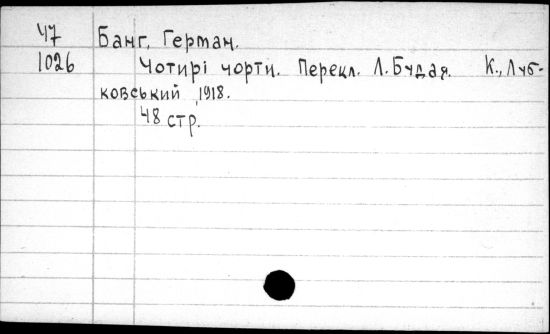 47 Банг, Герман.
1026 Чотирі чорти. Перекл. Л. Будая. К., Луб-
ковський, 1918.
48 стр.